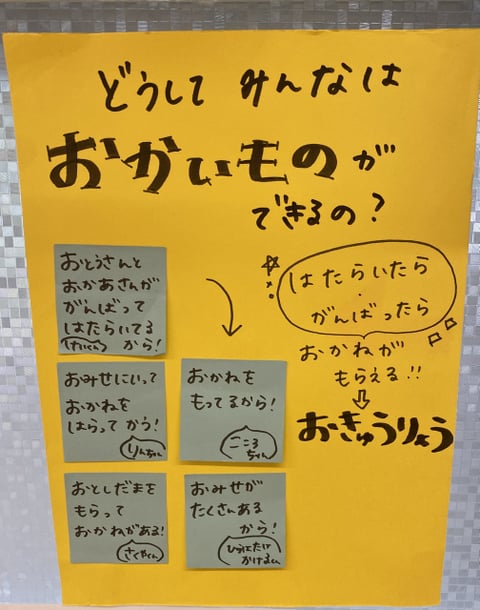 どうして みんなは
おかいものが
できるの？
おとうさんと
おかあさんが
がんばって
はたらいてる
から！
けいくん
おみせにいって
おかねを
はらって かう！
りんちゃん
おかねを
もってるから！
こころ
ちゃん
おとしだまを
もらって
おかねがある！
さくやくん
おみせが
たくさんある
から！
かけるくん
はたらいたら
・
がんばったら
おかねが
もらえる!!
おきゅうりょう